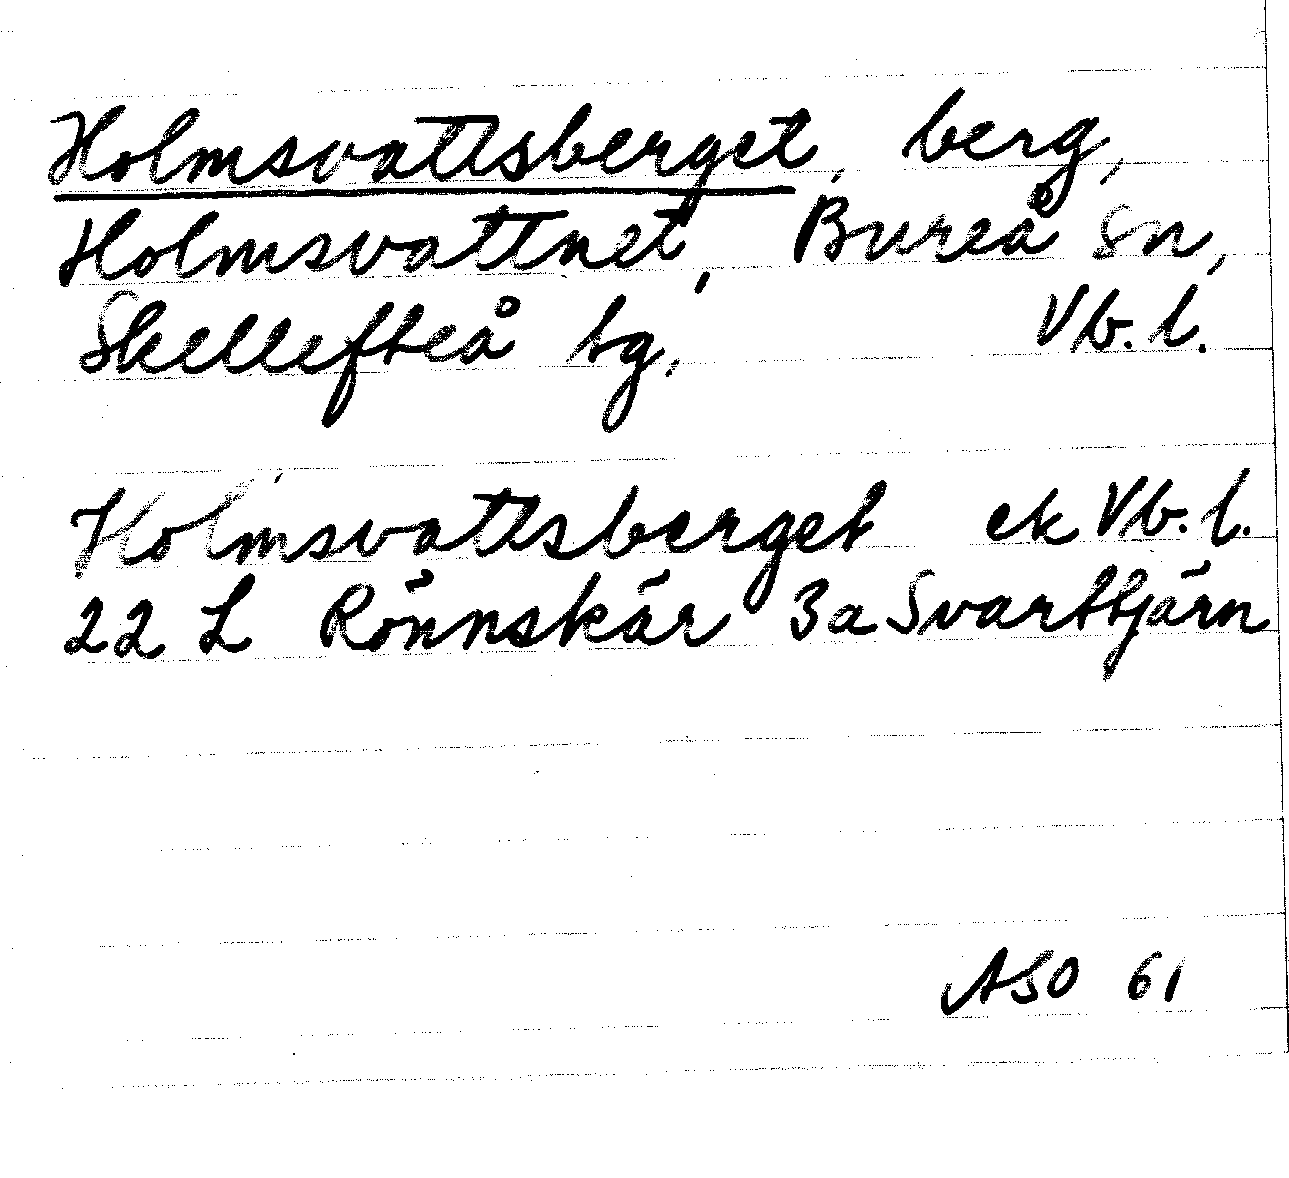 Holmsvattsberget, berg,
Holmsvattnet, Bureå sn,
Skellefteå tg, Vb. l.
Holmsvattsberget ek Vb. l.
22 L Rönnskär 3a Svarttjärn
ASO 61